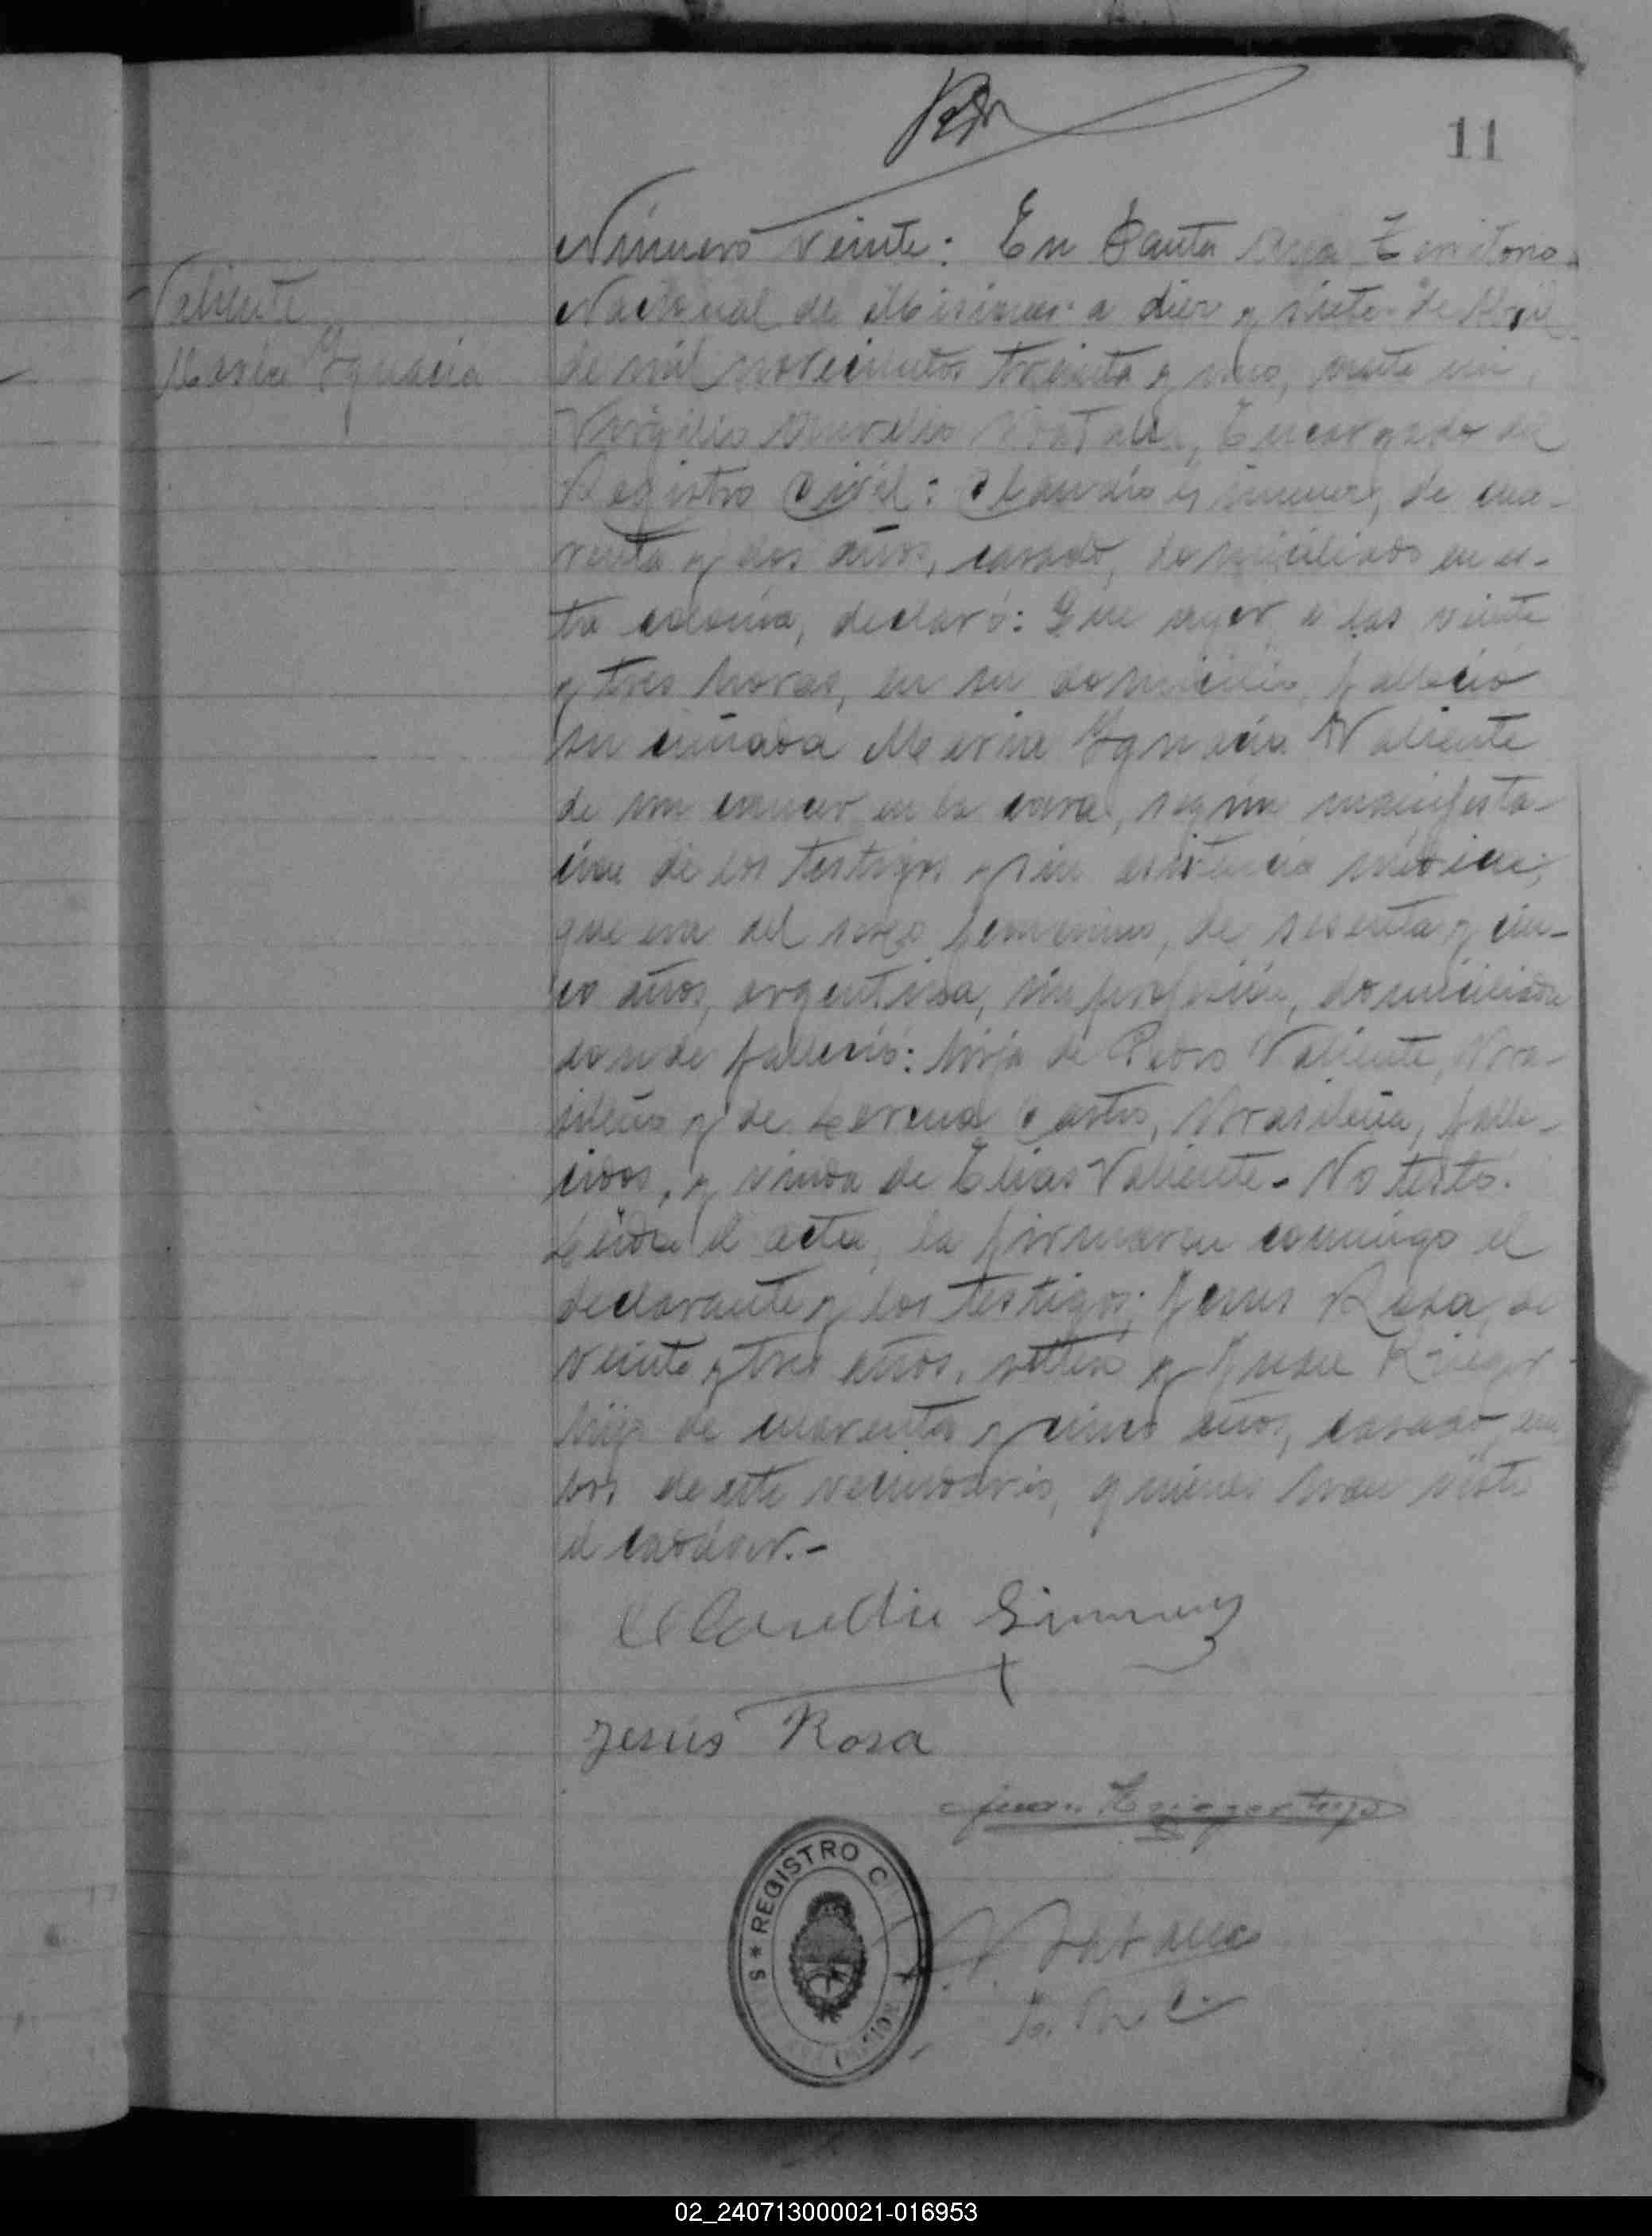 11
Valiente
María Ignacia
Número veinte: En Santa Ana, Territorio
Nacional de Misiones a diez y siete de Abril
de mil novecientos treinta y uno, ante mi,
Virgilio Aurelio, Encargado del
Registro Civil: Claudio Gimenez, de cua-
renta y dos años, casado, domiciliado en es-
ta colonia, declaró: Que ayer a las veinte
y tres horas, en su domicilio, falleció
su cuñada María Ignacia Valiente
de un cancer en la cara, según manifesta-
cion de los testigos y sin asistencia médica;
que era del sexo femenino, de sesenta y cin-
co años, argentina, sin profesión, domiciliada
donde falleció: hija de Pedro Valiente, bra-
sileño y de Castro, brasileña, falle-
cidos, y viuda de Elias Valiente. No testó.
Leida el acta, la firmaron conmigo el
declarante y los testigos: Jesus Rosa, de
veinte y tres años, soltero y Juan Krieger
hijo de cuarenta y cinco años, casado, am
bos de este vecindario, quienes han visto
el cadaver.-
Claudio Gimenez
Jesús Rosa
Juan Krieger hijo
REGISTRO C
E. R. C.
02_240713000021-016953